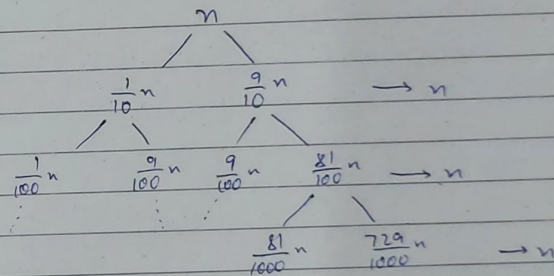 n
1/10 n 9/10 n → n
1/100 n 9/100 n 9/100 n 81/100 n → n
81/1000 n 729/1000 n → n